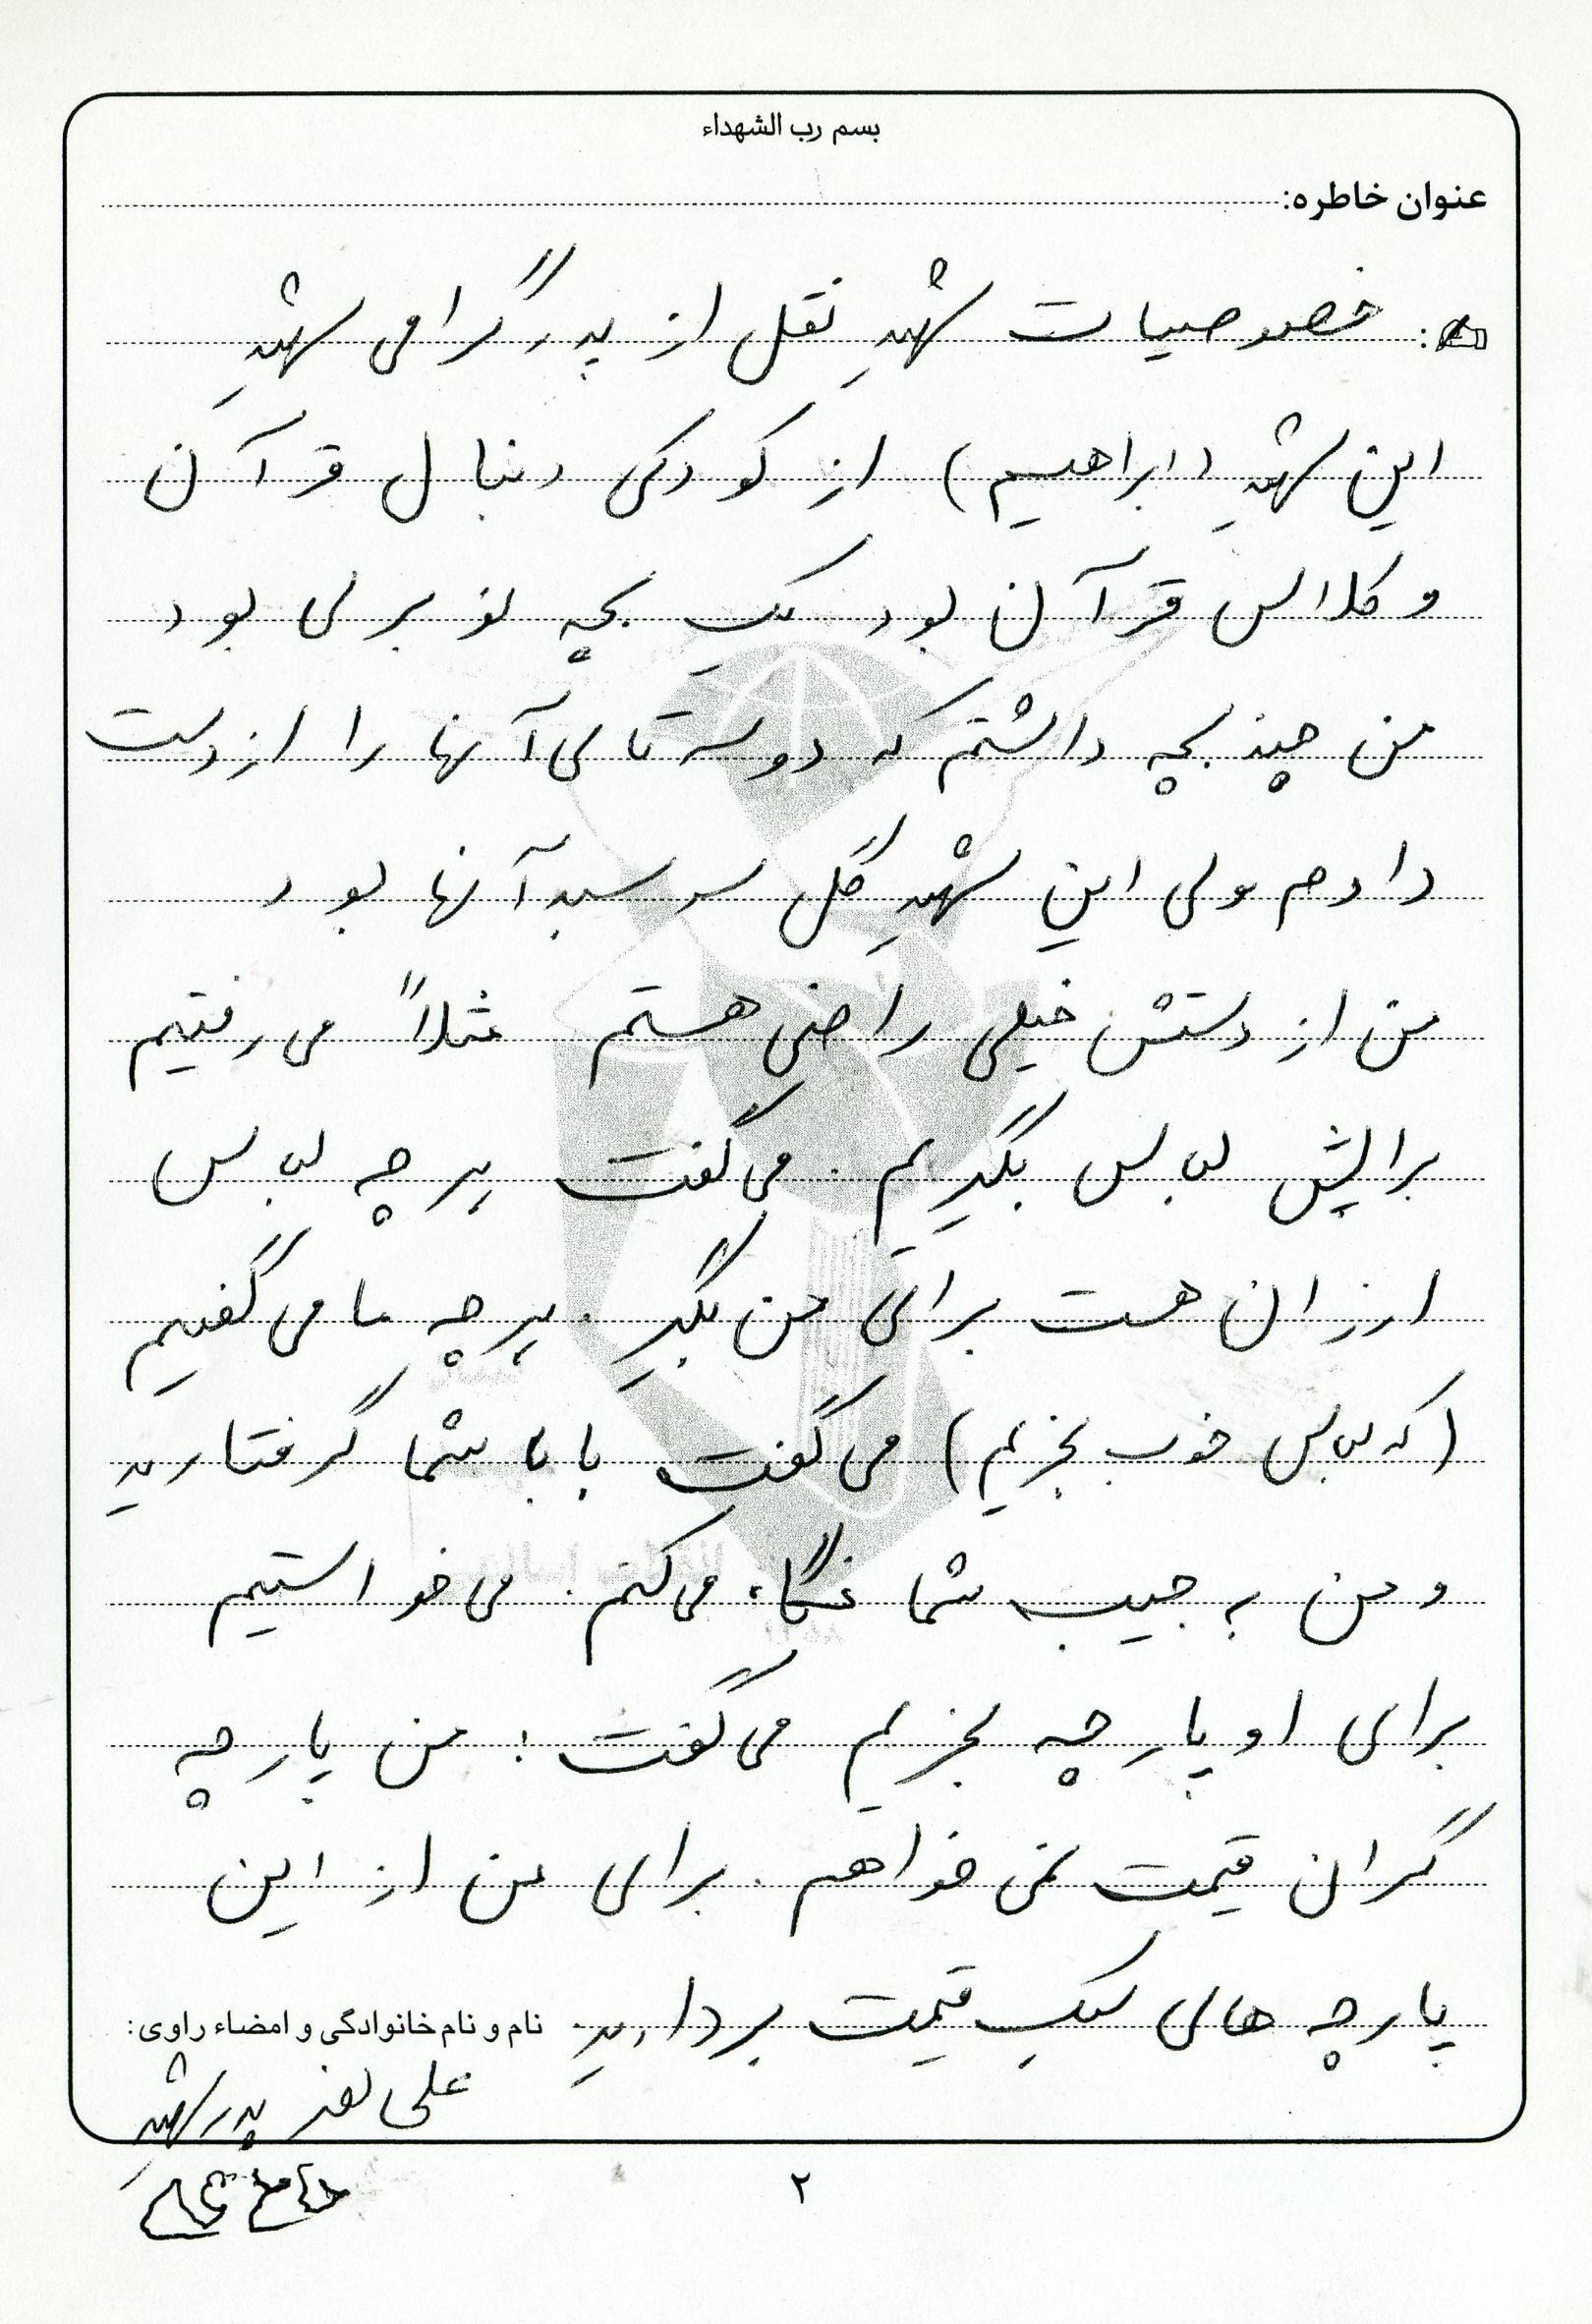 بسم رب الشهداء
عنوان خاطره:
خصوصیات شهید نقل از پدر گرامی شهید
این شهید (ابراهیم) از کودکی دنبال قرآن
و کلاس قرآن بود یک بچه نوبری بود
من چند بچه داشتم که دو سه تای آنها را از دست
دادم ولی این شهید گل سرسبد آنها بود
من از دستش خیلی راضی هستم مثلاً می رفتیم
برایش لباس بگیریم . می گفت هر چه لباس
ارزان هست برای من بگیر . هر چه ما می گفتیم
(که لباس خوب بخریم) می گفت بابا شما گرفتارید
و من به جیب شما نگاه می کنم . می خواستیم
برای او پارچه بخریم می گفت : من پارچه
گران قیمت نمی خواهم . برای من از این
پارچه های سبک قیمت بردارید
نام و نام خانوادگی و امضاء راوی:
علی پدر شهید
۲